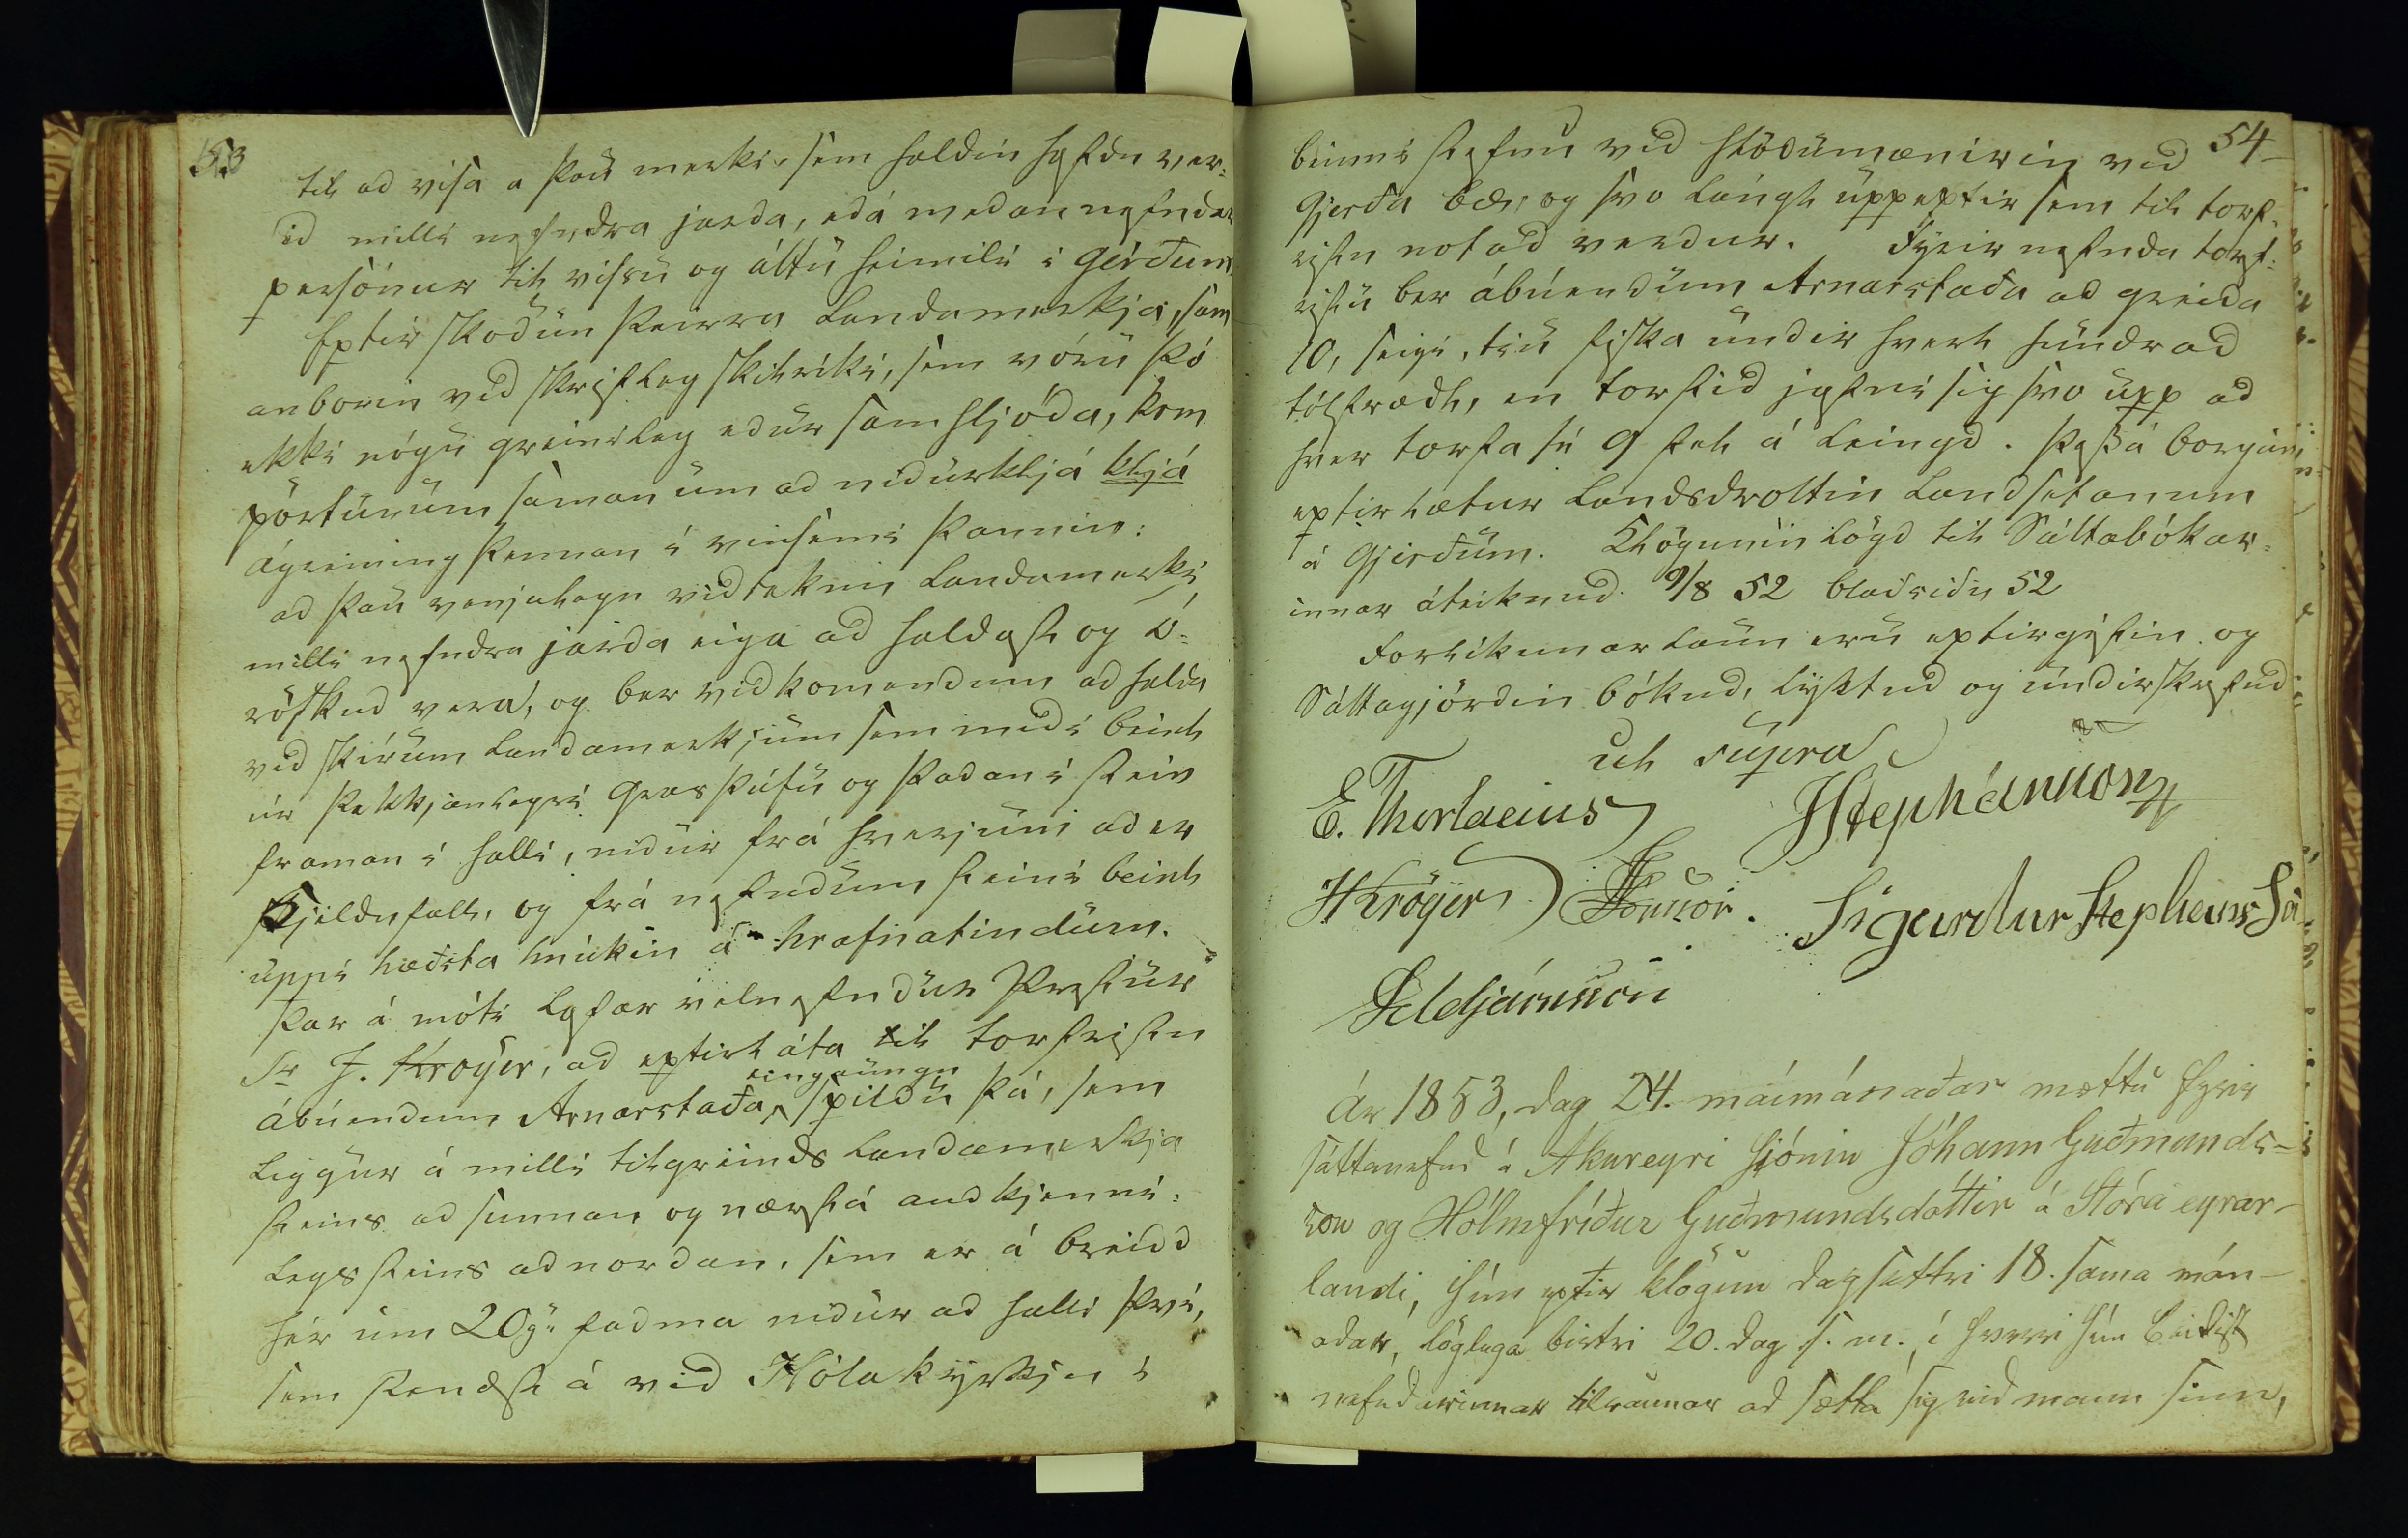 53
til ad visa a þau merki, sem haldin hefdu ver-
id milli nefndra jarda, edá medan nefndar
persónur til vissu og áttu heimili í Gérðum
Eptir skodun þeirra Landamerkja, sem
anborin vid skrifleg skilríki, sem vóru þó
ekki nógu greinileg edur samhljóda, kom
pörtunum saman um ad nidurkljá kljá
ágreining þennan í vinsemi þannin:
ad þau venjulegu vidteknu Landamerki
milli nefndra jarda eiga ad haldast og ó-
röskud vera, og ber vidkomendum ad halda
vid skírum Landamerkjum sem midi beint
úr þekkjanlegri Grasþúfu og þadan í stein
framan í halli, nidur frá hverjum ad er
Skjildufall, og frá nefndum steini beint
uppí hæðsta hnúkin á Hrafnatindum.
Þar á móti lofar velnefndur Prestur
Sr J. Kroÿer, ad eptirláta til torfristu
eingaungu
ábúendum Arnarstaða, spildu þá, sem
liggur á milli tilgreinds Landamerkja
steins ad sunnan og nærstá audkjenni-
legs steins ad nordan, sem er á breidd
hér um 20gu fadma nidur ad halli því,
sem stendst á vid Hólakyrkju í
54
beinni stefnu vid Stödumænirin vid
Gjerða bæ, og svo lángt uppeptir sem til torf-
ristu notad verdur. Fyrir nefnda torf-
ristu ber ábúendum Arnarstaða ad greida
10, seigi, tíu fiska undir hvert hundrad
tólfrædt, en torfid jafni sig svo upp ad
hver torfa sé 9 fet á leingd. Þessa borgun
eptirlætur Landsdrottin Landsetanum
á Gjerðum. Klögunin lögd til Sáttabókar-
innar áteiknud 9/8 52 bladsidu 52
Forlikunarlaun eru eptirgéfin og
Sáttagjördin bókud, lyktud og undirskrifud
ut supra
E. Thorlacius JStephánsson
JKröyer JJónsson. Sigurdur Stephensson
JEldjárnsson
Ár 1853, dag 24. máimánaðar mættu fyrir
sáttanefnd á Akureyri hjónin Jóhann Guðmunds-
son og Hólmfríður Guðmundsdóttir á Stóraeyrar-
landi, hún eptir klögun dagsettri 18. sama mán-
adar, löglega birtri 20. dag s. m., í hverri hún beidist
nefndarinnar tilraunar ad sætta sig vid mann sinn,